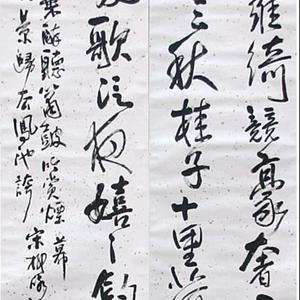 羅綺競豪奢
三秋桂子十里荷
歌泛夜嬉〻釣
乘醉聽簫鼓吟賞煙
景歸去鳳池誇 宋柳